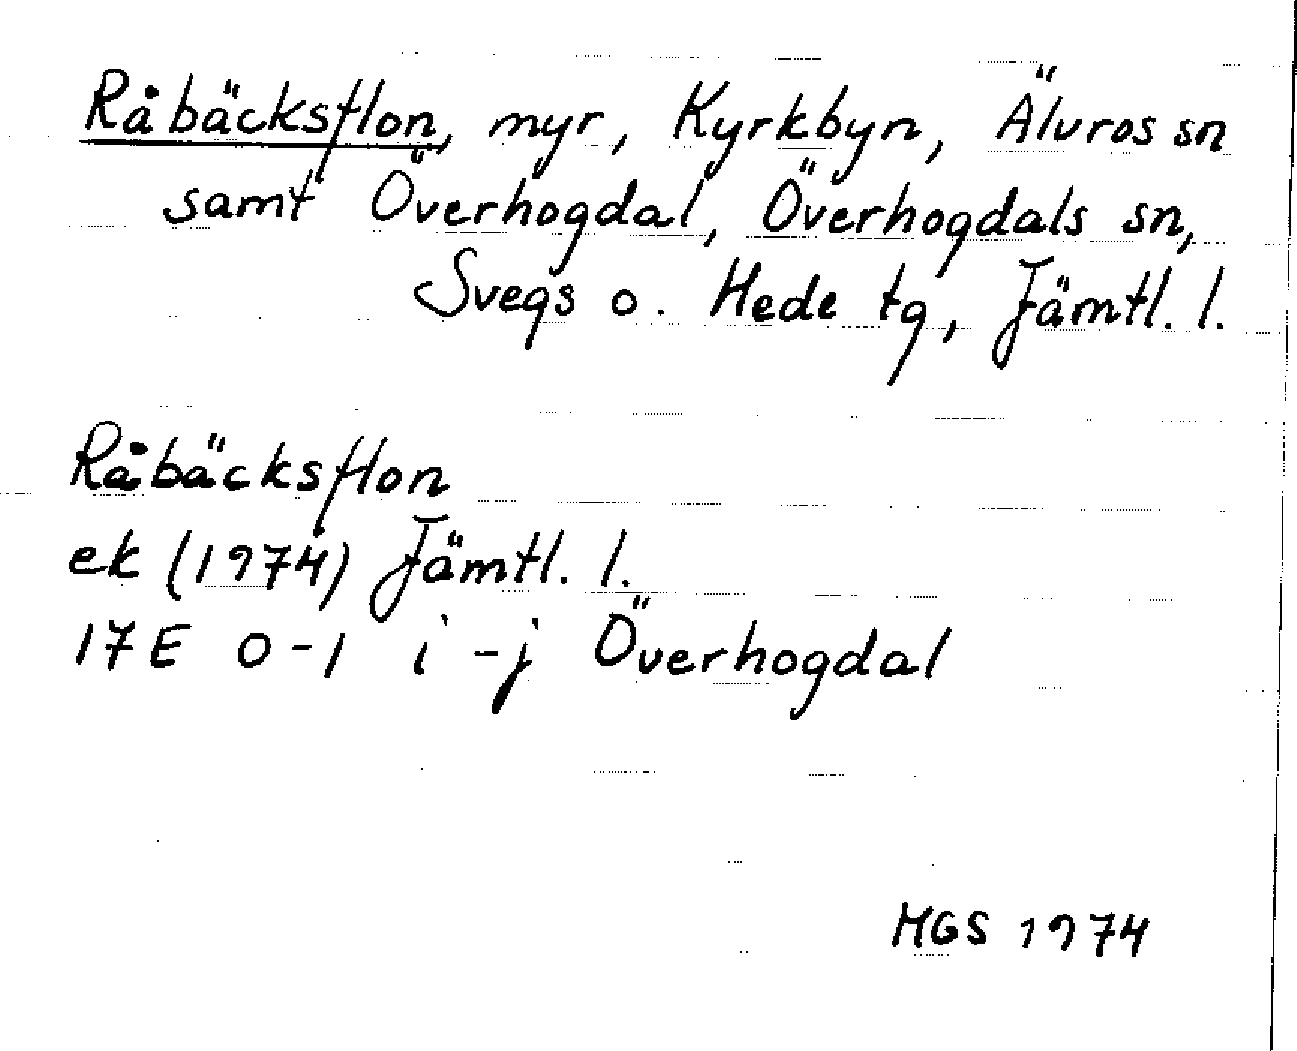 Råbäcksflon, myr, Kyrkbyn, Älvros sn
samt Överhogdal, Överhogdals sn,
Svegs o. Hede tg, Jämtl. l.
Råbäcksflon
ek (1974) Jämtl. l.
17E 0-1 i-j Överhogdal
MGS 1974